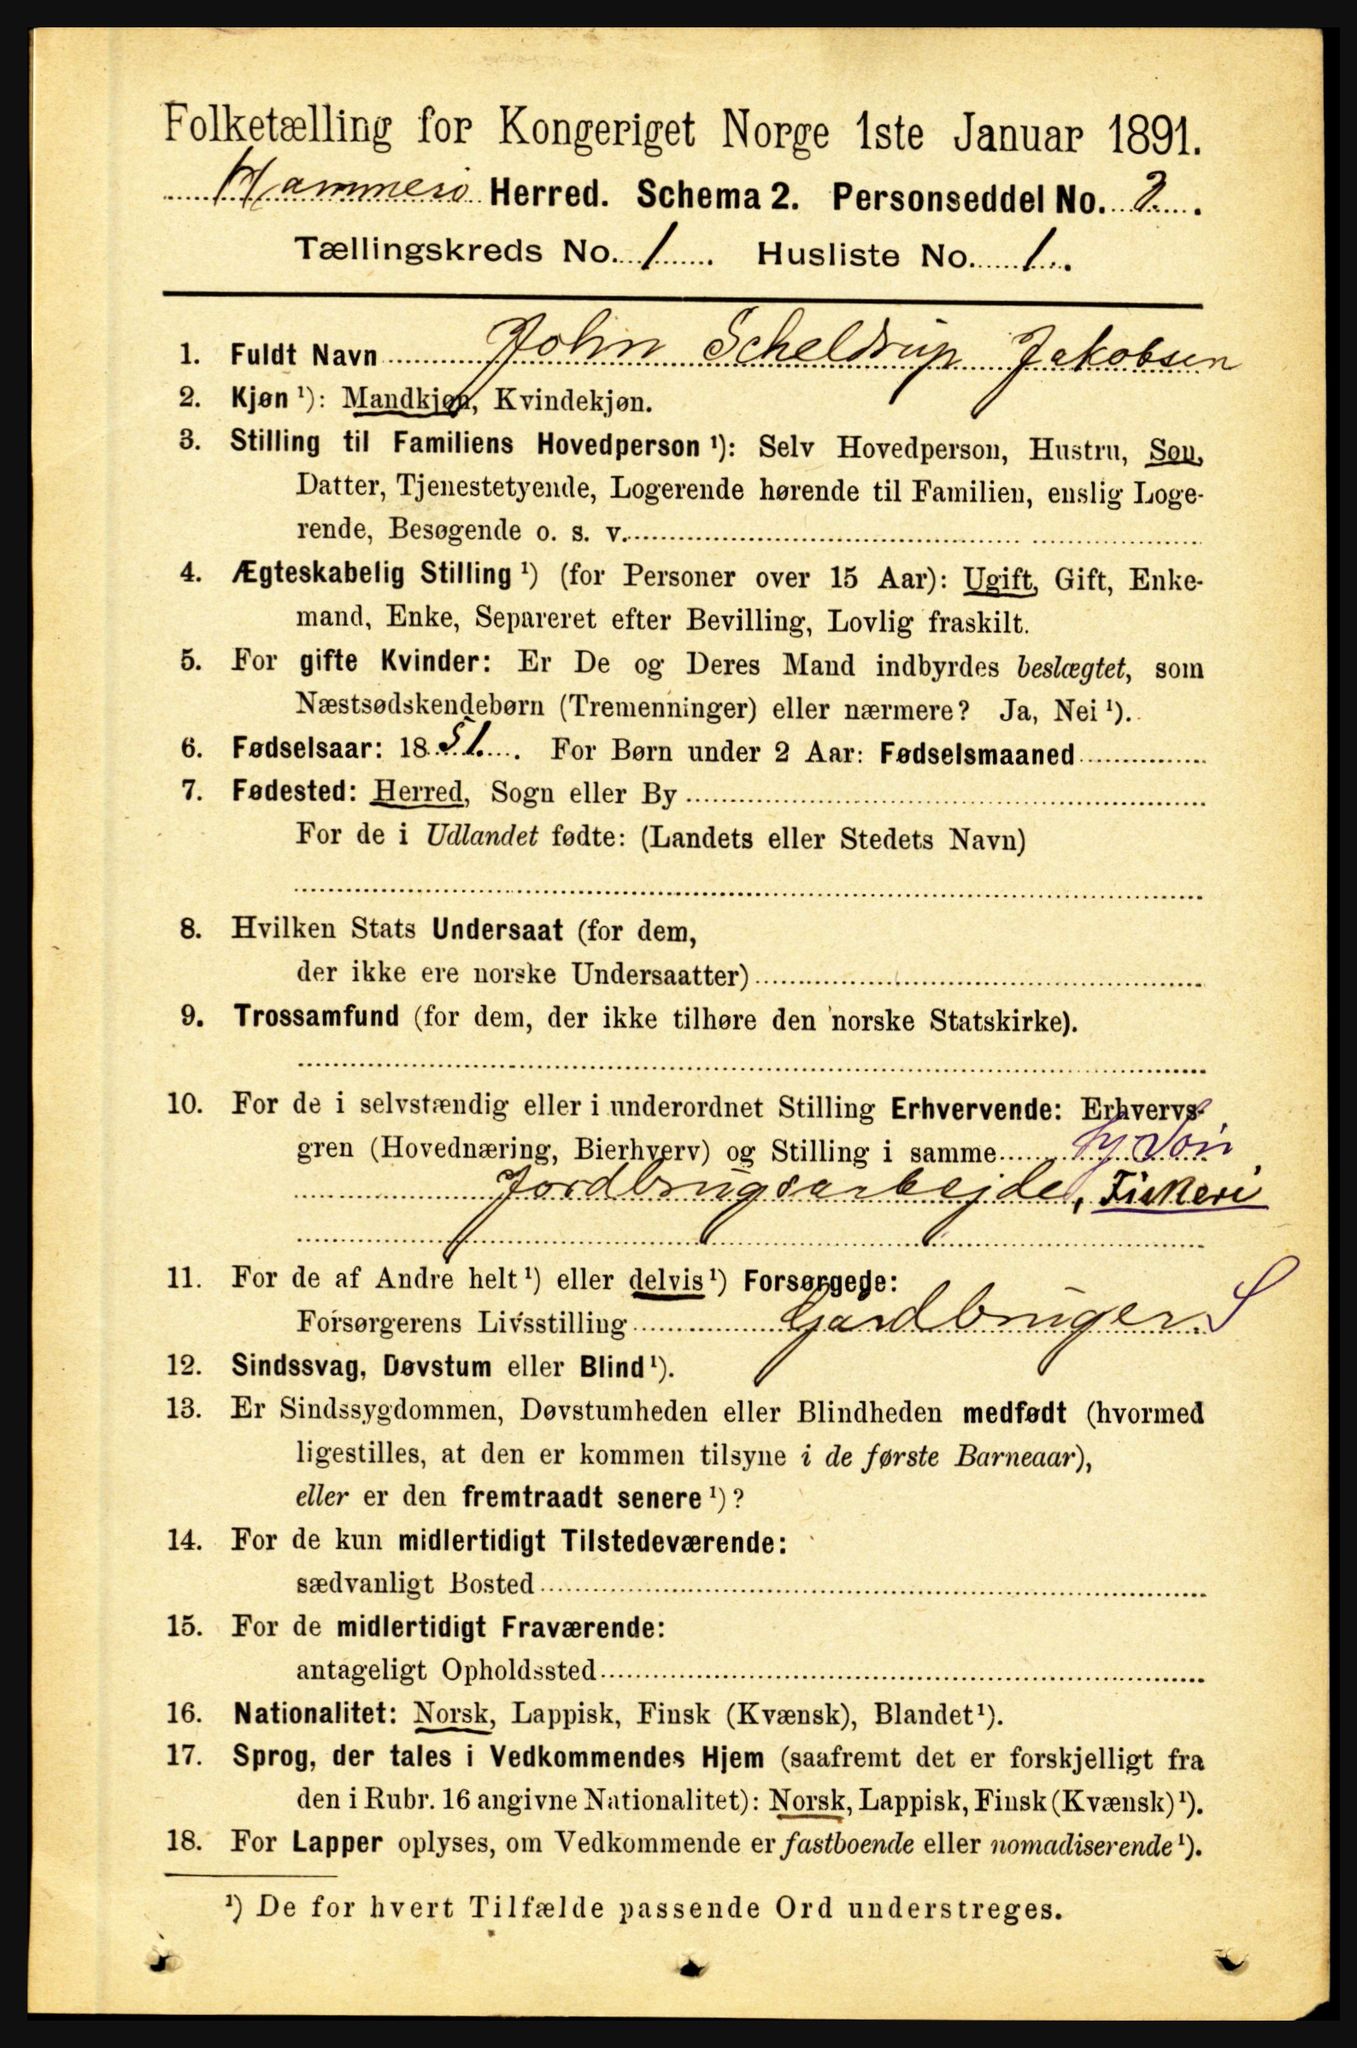 Folketælling for Kongeriget Norge 1ste Januar 1891.
Hammerø Herred. Schema 2. Personseddel No. 2.
Tællingskreds No. 1. Husliste No. 1.
1. Fuldt Navn John Scheldrup Jakobsen
2. Kjøn ¹): Mandkjøn, Kvindekjøn.
3. Stilling til Familiens Hovedperson ¹): Selv Hovedperson, Hustru, Søn,
Datter, Tjenestetyende, Logerende hørende til Familien, enslig Loge-
rende, Besøgende o. s. v.
4. Ægteskabelig Stilling ¹) (for Personer over 15 Aar): Ugift, Gift, Enke-
mand, Enke, Separeret efter Bevilling, Lovlig fraskilt.
5. For gifte Kvinder: Er De og Deres Mand indbyrdes beslægtet, som
Næstsødskendebørn (Tremenninger) eller nærmere? Ja, Nei ¹).
6. Fødselsaar: 1851. For Børn under 2 Aar: Fødselsmaaned
7. Fødested: Herred, Sogn eller By
For de i Udlandet fødte: (Landets eller Stedets Navn)
8. Hvilken Stats Undersaat (for dem,
der ikke ere norske Undersaatter)
9. Trossamfund (for dem, der ikke tilhøre den norske Statskirke).
10. For de i selvstændig eller i underordnet Stilling Erhvervende: Erhvervs-
gren (Hovednæring, Bierhverv) og Stilling i samme Søn
Jordbrugsarbejde, Fiskeri
11. For de af Andre helt ¹) eller delvis ¹) Forsørgede:
Forsørgerens Livsstilling Gardbruger. S
12. Sindssvag, Døvstum eller Blind ¹).
13. Er Sindssygdommen, Døvstumheden eller Blindheden medfødt (hvormed
ligestilles, at den er kommen tilsyne i de første Barneaar),
eller er den fremtraadt senere ¹)?
14. For de kun midlertidigt Tilstedeværende:
sædvanligt Bosted
15. For de midlertidigt Fraværende:
antageligt Opholdssted
16. Nationalitet: Norsk, Lappisk, Finsk (Kvænsk), Blandet ¹).
17. Sprog, der tales i Vedkommendes Hjem (saafremt det er forskjelligt fra
den i Rubr. 16 angivne Nationalitet): Norsk, Lappisk, Finsk (Kvænsk) ¹).
18. For Lapper oplyses, om Vedkommende er fastboende eller nomadiserende ¹).
¹) De for hvert Tilfælde passende Ord understreges.